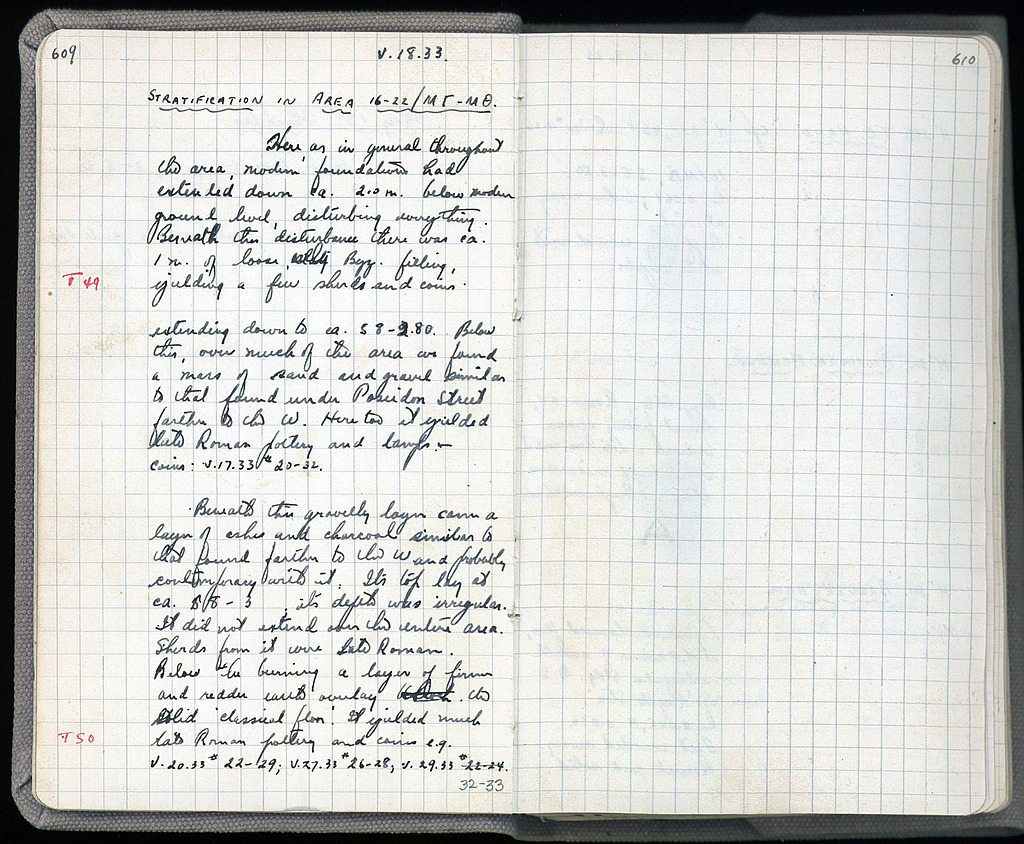 609
V.18.33.
610
STRATIFICATION IN AREA 16-22/ΜΓ-ΜΘ.
Here, as in general throughout
the area, modern foundations had
extended down ca. 2.0 m. below modern
ground level, disturbing everything.
Beneath this disturbance there was ca.
1 m. of loose, Byz. filling,
T 49
yielding a few sherds and coins.
extending down to ca. 58-2.80. Below
this, over much of the area we found
a mass of sand and gravel similar
to that found under Poseidon Street
farther to the W. Here too it yielded
late Roman pottery and lamps.-
coins: V.17.33 # 20-32.
Beneath this gravelly layer came a
layer of ashes and charcoal similar to
that found farther to the W and probably
contemporary with it. Its top lay at
ca. 58-3 , its depth was irregular.
It did not extend over the entire area.
Sherds from it were late Roman.
Below the burning a layer of firmer
and redder earth overlay the
solid 'classical floor'. It yielded much
T 50
late Roman pottery and coins e.g.
V.20.33 # 22-29; V.27.33 # 26-28; V.29.33 # 22-24.
32-33